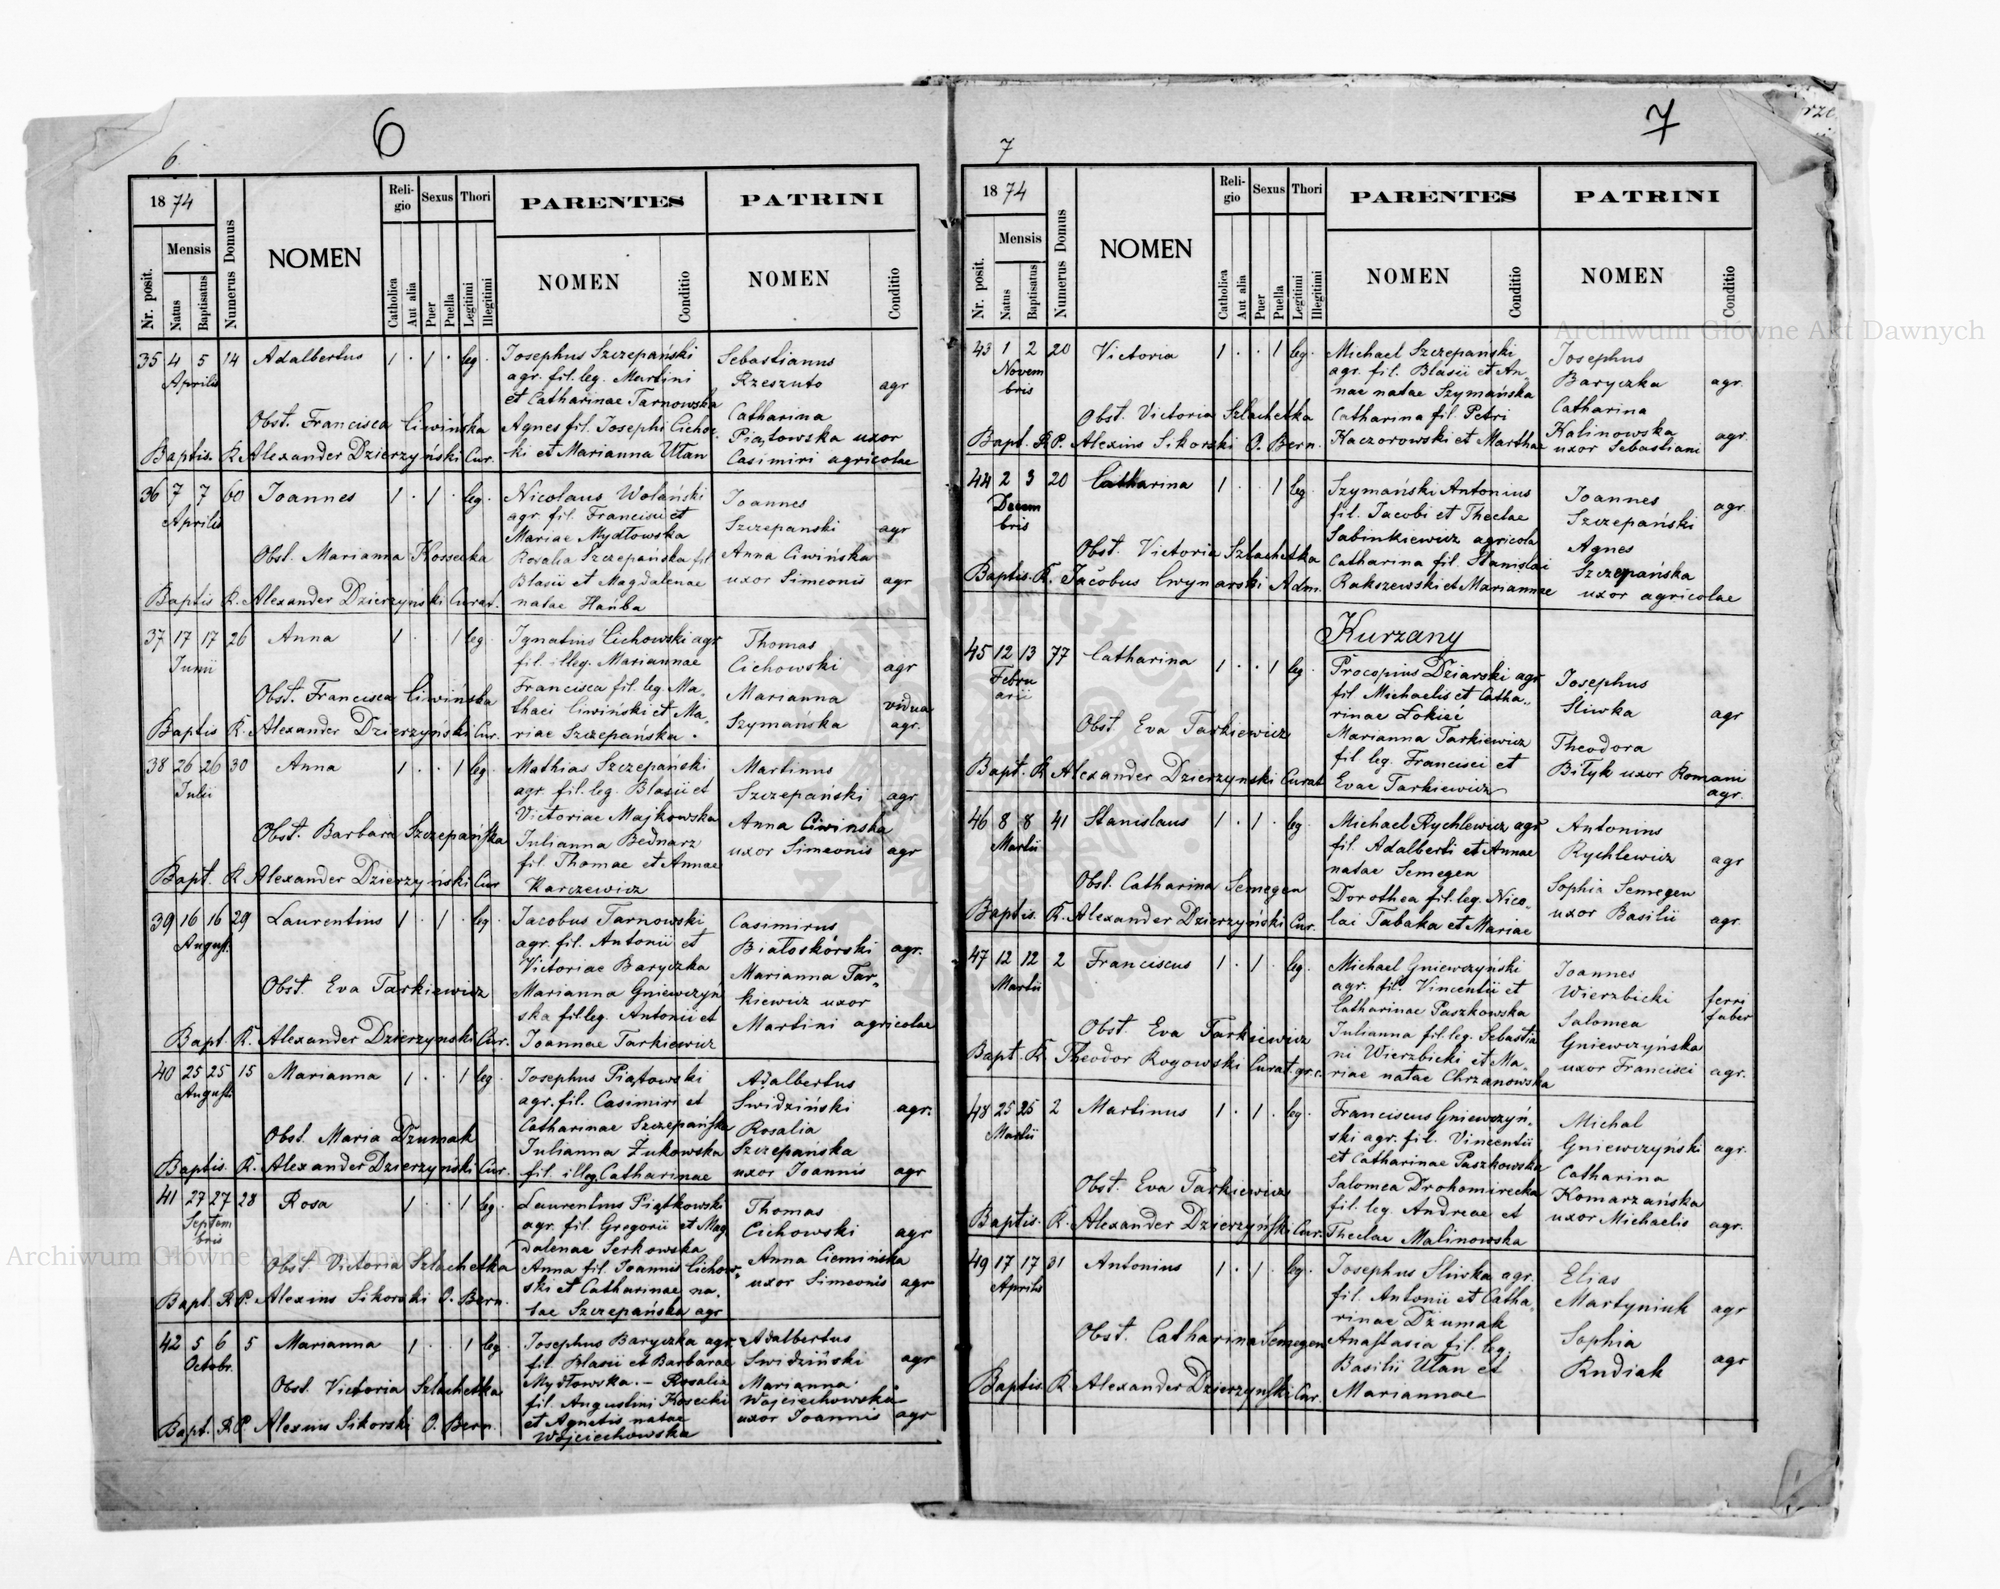 6
6.
1874
Mensis
Nr. posit.
Natus
Baptisatus
Numerus Domus
NOMEN
Religio
Catholica
Aut alia
Sexus
Puer
Puella
Thori
Legitimi
Illegitimi
PARENTES
NOMEN
Conditio
PATRINI
NOMEN
Conditio
35 4 5 14 Adalbertus 1 . 1 . leg. Josephus Szczepański Sebastianus
Aprilis agr. fil. leg. Martini Rzeszuto agr
et Catharinae Tarnowska Catharina
Obst. Francisca Ciwińska Agnes fil. Josephi Cichoc- Piątowska uxor
Baptis. K. Alexander Dzierzyński Cur. ki et Marianna Ułan Casimiri agricolae
36 7 7 60 Joannes 1 . 1 . leg. Nicolaus Wolański Joannes
Aprilis agr. fil. Francisci et Szczepanski agr
Mariae Mydłowska
Obst. Marianna Kossecka Rosalia Szczepańska fil Anna Ciwińska
Blasii et Magdalenae uxor Simeonis agr
Baptis K. Alexander Dzierzyński Curat. natae Hańba
37 17 17 26 Anna 1 . . 1 leg. Ignatius Cichowski agr Thomas
Junii fil. illeg. Mariannae Cichowski agr
Obst. Francisca Ciwińska Francisca fil. leg. Ma- Marianna vidua
thaei Ciwiński et Ma- Szymanska agr.
Baptis K. Alexander Dzierzyński Cur. riae Szczepańska.
38 26 26 30 Anna 1 . . 1 leg. Mathias Szczepański Martinus
Julii agr. fil. leg. Blasii et Szczepański agr
Victoriae Majkowska
Obst. Barbara Szczepańska Julianna Bednarz Anna Ciwinska
fil. Thomae et Annae uxor Simeonis agr
Bapt. K Alexander Dzierzyński Cur Karczewicz
39 16 16 29 Laurentius 1 . 1 . leg. Jacobus Tarnowski Casimirus
August. agr. fil. Antonii et Białoskórski agr.
Victoriae Baryczka Marianna Tar-
Obst. Eva Tarkiewicz Marianna Gniewczyń kiewicz uxor
ska fil. leg. Antonii et Martini agricolae
Bapt. K. Alexander Dzierzynski Cur. Joannae Tarkiewicz
40 25 25 15 Marianna 1 . . 1 leg. Josephus Piątowski Adalbertus
Augusti agr. fil. Casimiri et Swidziński agr.
Catharinae Szczepańska Rosalia
Obst. Maria Dzumak Julianna Żukowska Szczepańska
Baptis. K. Alexander Dzierzyński Cur. fil. illeg. Catharinae uxor Joannis agr
41 27 27 28 Rosa 1 . . 1 leg. Laurentius Piątkowski Thomas
Septem agr. fil Gregorii et Mag Cichowski agr
bris dalenae Serkowska
Obst. Victoria Szlachetka Anna fil. Joannis Cichow- Anna Ciemińska
ski et Catharinae na- uxor Simeonis agr
Bapt. R.P. Alexius Sikorski O. Bern. tae Szczepańska agr
42 5 6 5 Marianna 1 . . 1 leg. Josephus Baryczka agr. Adalbertus
Octobr. fil. Blasii et Barbarae Swidziński agr
Obst. Victoria Szlachetka Mydłowska. – Rosalia Marianna
fil. Augustini Kosecki Wojciechowska
Bapt. R.P. Alexius Sikorski O. Bern. et Agnetis natae uxor Joannis agr
Wojciechowska
7
7
1874
Mensis
Nr. posit.
Natus
Baptisatus
Numerus Domus
NOMEN
Religio
Catholica
Aut alia
Sexus
Puer
Puella
Thori
Legitimi
Illegitimi
PARENTES
NOMEN
Conditio
PATRINI
NOMEN
Conditio
43 1 2 20 Victoria 1 . . 1 leg. Michael Szczepański Josephus
Novem agr. fil. Blasii et An- Baryczka agr.
bris nae natae Szymańska Catharina
Obst. Victoria Szlachetka Catharina fil. Petri Kalinowska agr.
Bapt. R.P. Alexius Sikorski O. Bern. Kaczorowski et Marthae uxor Sebastiani
44 2 3 20 Catharina 1 . . 1 leg Szymański Antonius Joannes agr
Decem fil. Jacobi et Theclae Szczepański
bris Sabinkiewicz agricola Agnes
Obst. Victoria Szlachetka Catharina fil. Stanislai Szczepańska
Baptis. K. Jacobus Cwynarski Adm. Rakszewski et Mariannae uxor agricolae
Kurzany
45 12 13 77 Catharina 1 . . 1 leg. Procopius Dziarski agr Josephus
Febru fil Michaelis et Catha- Śliwka agr
arii rinae Łokieć
Obst. Eva Tarkiewicz Marianna Tarkiewicz Theodora
fil leg. Francisci et Biłyk uxor Romani
Bapt. K Alexander Dzierzynski Curat Evae Tarkiewicz agr.
46 8 8 41 Stanislaus 1 . 1 . leg Michael Rychlewicz agr Antonius
Martii fil. Adalberti et Annae Rychlewicz agr
natae Semegen
Obst. Catharina Semegen Dorothea fil. leg. Nico- Sophia Semegen
Baptis. K. Alexander Dzierzyński Cur. lai Tabaka et Mariae uxor Basilii agr.
47 12 12 2 Franciscus 1 . 1 . leg. Michael Gniewczyński Joannes
Martii agr. fil. Vincentii et Wierzbicki ferri
Catharinae Paszkowska Salomea faber
Obst. Eva Tarkiewicz Julianna fil. leg. Sebastia Gniewczyńska
Bapt. K. Theodor Rogowski Curat. gr.c. ni Wierzbicki et Ma- uxor Francisci agr.
riae natae Chrzanowska
48 25 25 2 Martinus 1 . 1 . leg. Franciscus Gniewczyń- Michal
Martii ski agr. fil. Vincentii Gniewczyński agr.
et Catharinae Paszkowska Catharina
Obst. Eva Tarkiewicz Salomea Drohomirecka Komarzańska
fil. leg. Andreae et uxor Michaelis agr.
Baptis. K. Alexander Dzierzyński Cur. Theclae Malinowska
49 17 17 31 Antonius 1 . 1 . leg. Josephus Sliwka agr. Elias
Aprilis fil. Antonii et Catha- Martyniuk agr
rinae Dzumak Sophia
Obst. Catharina Semegen Anastasia fil. leg. Rudiak agr
Basilii Ułan et
Baptis. K. Alexander Dzierzyński Cur. Mariannae
Archiwum Główne Akt Dawnych
Archiwum Główne Akt Dawnych